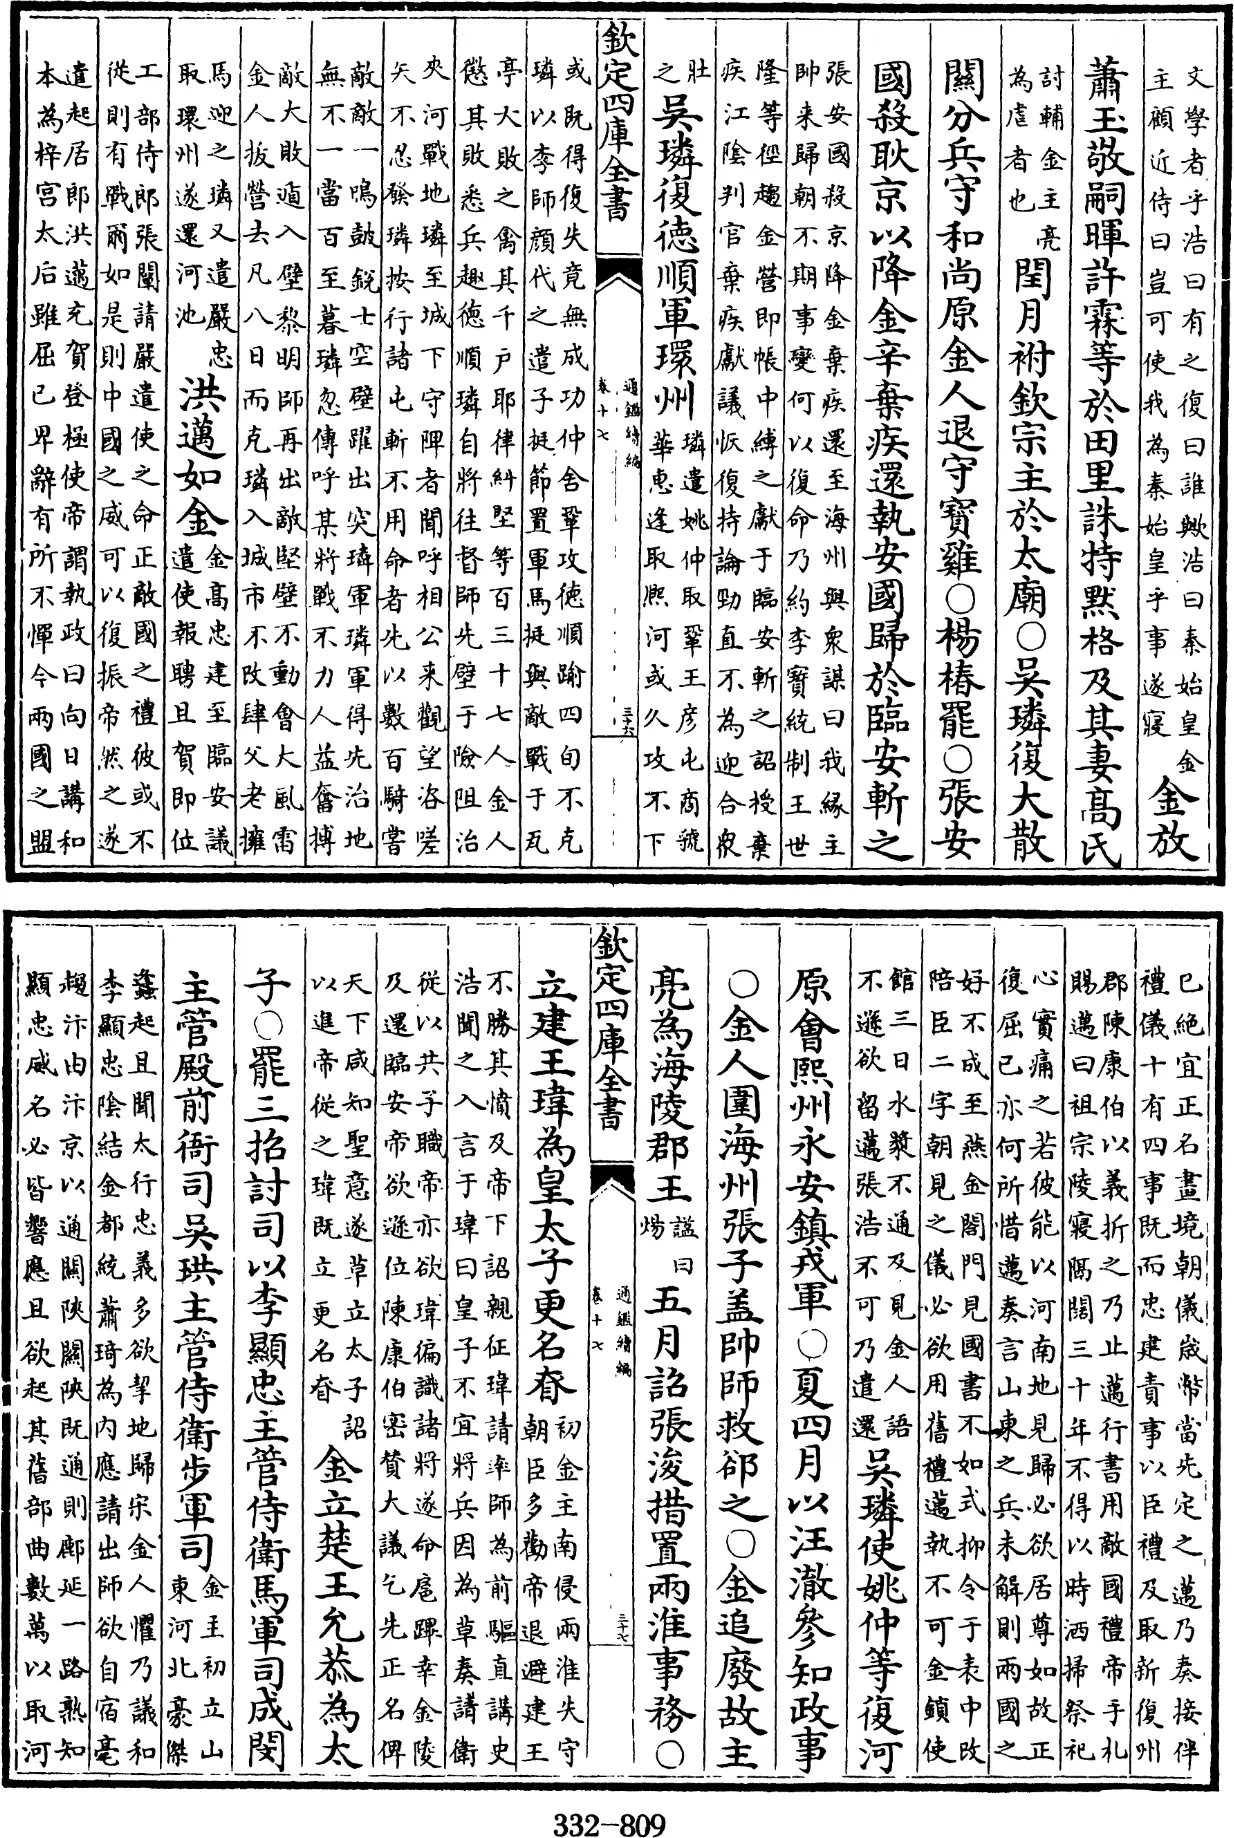 文學者乎浩曰有之復曰誰歟浩曰秦始皇金
主顧近侍曰豈可使我為秦始皇乎事遂寢
金放
蕭玉敬嗣暉許霖等於田里誅特黙格及其妻高氏
討輔金主亮
為虐者也
閏月祔欽宗主於太廟○吳璘復大散
關分兵守和尚原金人退守寳雞○楊椿罷○張安
國殺耿京以降金辛棄疾還執安國歸於臨安斬之
張安國殺京降金棄疾還至海州與衆謀曰我縁主
帥来歸朝不期事變何以復命乃約李寳統制王世
隆等徑趨金營即帳中縛之獻于臨安斬之詔授棄
疾江陰判官棄疾獻議恢復持論勁直不為迎合衆
壯
之
吳璘復徳順軍環州
璘遣姚仲取鞏王彦屯商虢
華惠逢取熈河或久攻不下
欽定四庫全書
通鑑續編
卷十七
三十六
或既得復失竟無成功仲舍鞏攻徳順踰四旬不克
璘以李師顔代之遣子挺節置軍馬挺與敵戰于瓦
亭大敗之禽其千戸耶律糾堅等百三十七人金人
懲其敗悉兵趣徳順璘自將往督師先壁于險阻治
夾河戰地璘至城下守陴者聞呼相公来觀望咨嗟
矢不忍發璘按行諸屯斬不用命者先以數百騎嘗
敵敵一鳴鼓鋭士空壁躍出突璘軍璘軍得先治地
無不一當百至暮璘忽傳呼某將戰不力人益奮搏
敵大敗遁入壁黎明師再出敵堅壁不動會大風雷
金人拔營去凡八日而克璘入城市不改肆父老擁
馬迎之璘又遣嚴忠
取環州遂還河池
洪邁如金
金高忠建至臨安議
遣使報聘且賀即位
工部侍郎張闡請嚴遣使之命正敵國之禮彼或不
從則有戰爾如是則中國之威可以復振帝然之遂
遣起居郎洪邁充賀登極使帝謂執政曰向日講和
本為梓宮太后雖屈已卑辭有所不憚今兩國之盟
已絶宜正名畫境朝儀歲幣當先定之邁乃奏接伴
禮儀十有四事既而忠建責事以臣禮及取新復州
郡陳康伯以義折之乃止邁行書用敵國禮帝手札
賜邁曰祖宗陵寢隔闊三十年不得以時洒掃祭祀
心實痛之若彼能以河南地見歸必欲居尊如故正
復屈已亦何所惜邁奏言山東之兵未解則兩國之
好不成至燕金閤門見國書不如式抑令于表中改
陪臣二字朝見之儀必欲用舊禮邁執不可金鎖使
館三日水漿不通及見金人語
不遜欲留邁張浩不可乃遣還
吳璘使姚仲等復河
原會熙州永安鎮戎軍○夏四月以汪澈參知政事
○金人圍海州張子盖帥師救郤之○金追廢故主
亮為海陵郡王
諡曰
煬
五月詔張浚措置兩淮事務○
欽定四庫全書
通鑑續編
卷十七
三十七
立建王瑋為皇太子更名昚
初金主南侵兩淮失守
朝臣多勸帝退避建王
不勝其憤及帝下詔親征瑋請率師為前驅直講史
浩聞之入言于瑋曰皇子不宜將兵因為草奏請衛
從以共子職帝亦欲瑋徧識諸將遂命扈蹕幸金陵
及還臨安帝欲遜位陳康伯密贊大議乞先正名俾
天下咸知聖意遂草立太子詔
以進帝從之瑋既立更名昚
金立楚王允恭為太
子○罷三招討司以李顯忠主管侍衛馬軍司成閔
主管殿前衙司吳珙主管侍衛步軍司
金主初立山
東河北豪傑
蠭起且聞太行忠義多欲挈地歸宋金人懼乃議和
李顯忠陰結金都統蕭琦為内應請出師欲自宿亳
趨汴由汴京以通關陝關陝既通則鄜延一路熟知
顯忠威名必皆響應且欲起其舊部曲數萬以取河
332-809